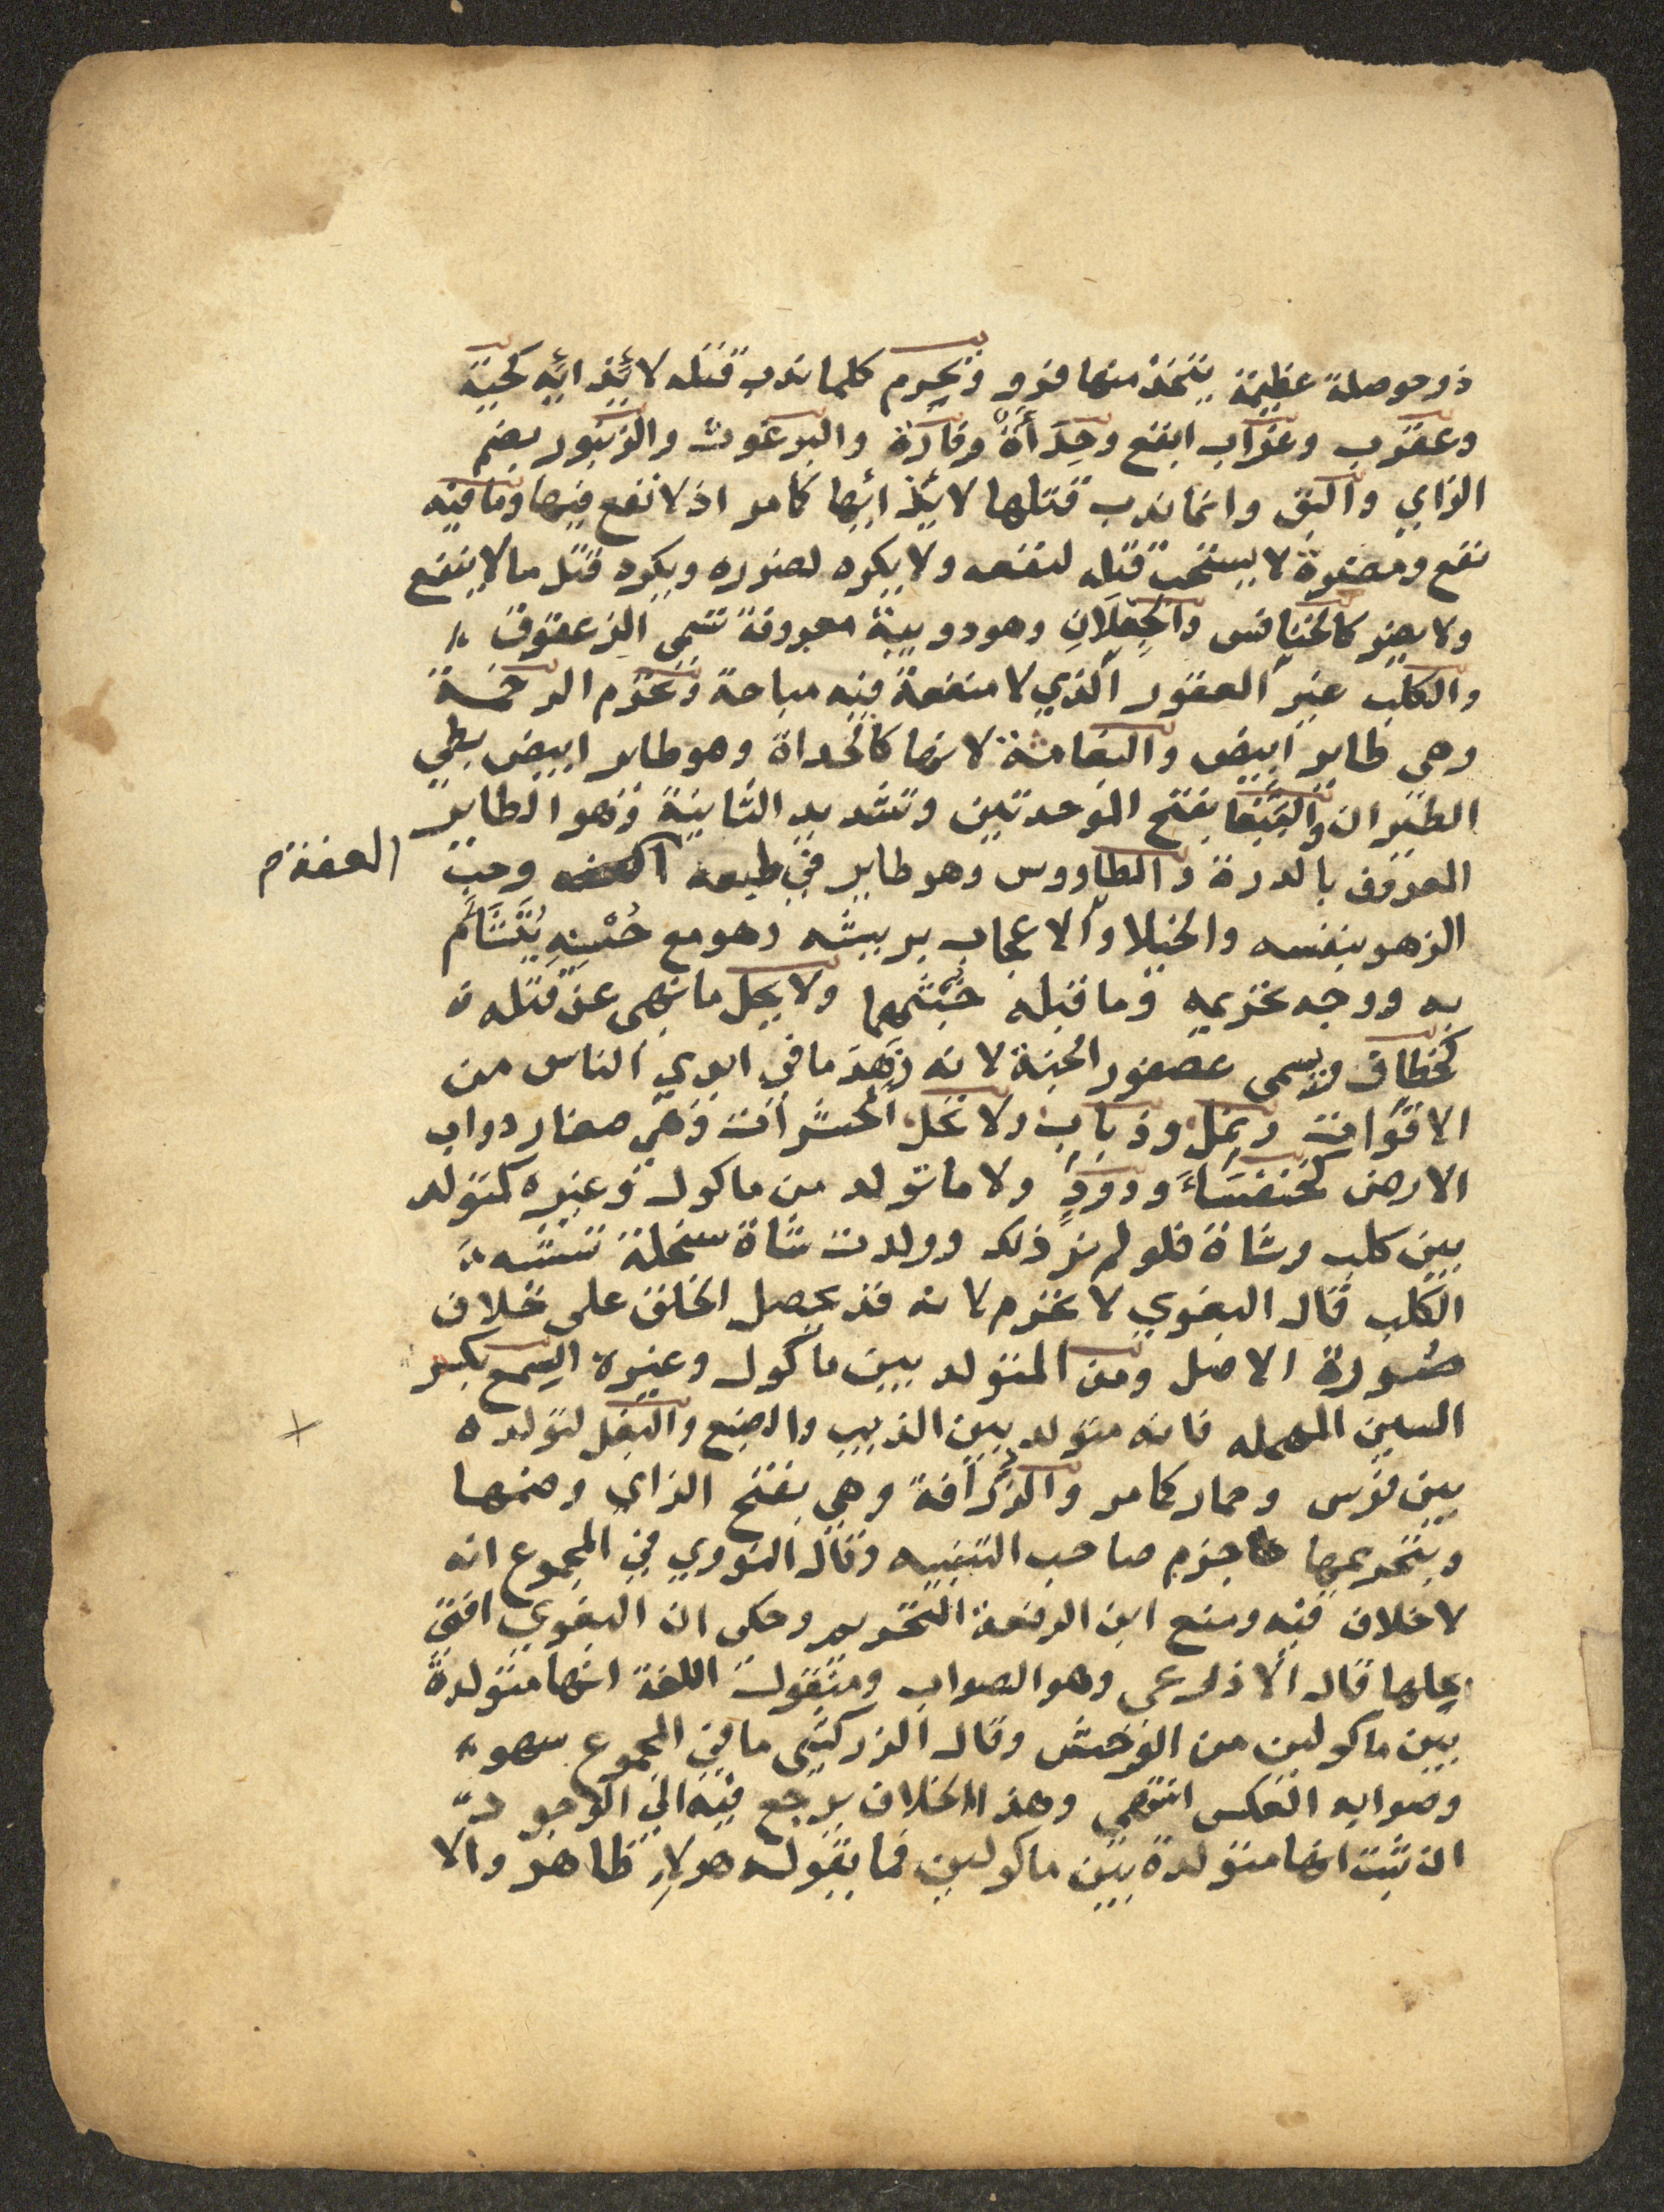 ذو حوصلة عظيمة يتخذ منها فرو ويحرم كلما ندب قتله لائيذائه كحية
وعقرب وغراب ابقع وحِدَأَة وفارة والبرغوث والزنبور بضم
الزاي والبق وانما ندب قتلها لائيذائها كامر اذ لا نفع فيها وما فيه
نفع ومضرة لا يستحب قتله لنفعه ولا يكره لضرره ويكره قتل ما لا ينفع
ولا يضر كالخنافس والجِعلَانِ وهو دويبة معروفة تسمى الزعقوق
والكلب غير العقور الذي لا منفعة فيه مباحة وتحرم الرخمة
وهي طاير ابيض والبغاثة لانها كالحداة وهو طاير ابيض بطي
الطيران والببغا بفتح الموحدتين وتشديد الثانية وهو الطاير
المعروف بالدرة والطاووس وهو طاير في طبعه العفه وحب
العفة م
الزهو بنفسه والخيلا والاعجاب بريشه وهو مع حُسْنِهِ يُتَشَائَم
به ووجه تحريمه وما قبله خبثهما ولا يحل ما نهى عن قتله
كخطاف ويسمى عصفور الجنة لانه زَهَدَ ما في ايدي الناس من
الاقوات ونمل وذباب ولا تحل الحشرات وهي صغار دواب
الارض كخنفسَاءَ ودودٍ ولا ما تولد من ماكول وغيره كمتولد
بين كلب وشاة فلو لم نر ذلك وولدت شاة سخلة تشبه
الكلب قال البغوي لا تحرم لانه قد يحصل الخلق على خلاف
صورة الاصل ومن المتولد بين ماكول وغيره السمع بكسر
السين المهمله فانه متولد بين الذيب والضبع والبغل لتولده
بين فرس وحمار كامر والزرافة وهي بفتح الزاي وضمها
وبتحريمها جزم صاحب التنبيه وقال النووي في المجموع انه
لا خلاف فيه ومنع ابن الرفعة التحريم وحكى ان البغوي افتى
بحلها قال الاذرعي وهو الصواب ومنقول اللغة انها متولدة
بين ماكولين من الوحش وقال الزركشي ما في المجموع سهو
وصوابه العكس انتهى وهذا الخلاف يرجع فيه الى الوجود
ان ثبت انها متولدة بين ماكولين فما يقوله هولاءِ ظاهر والا